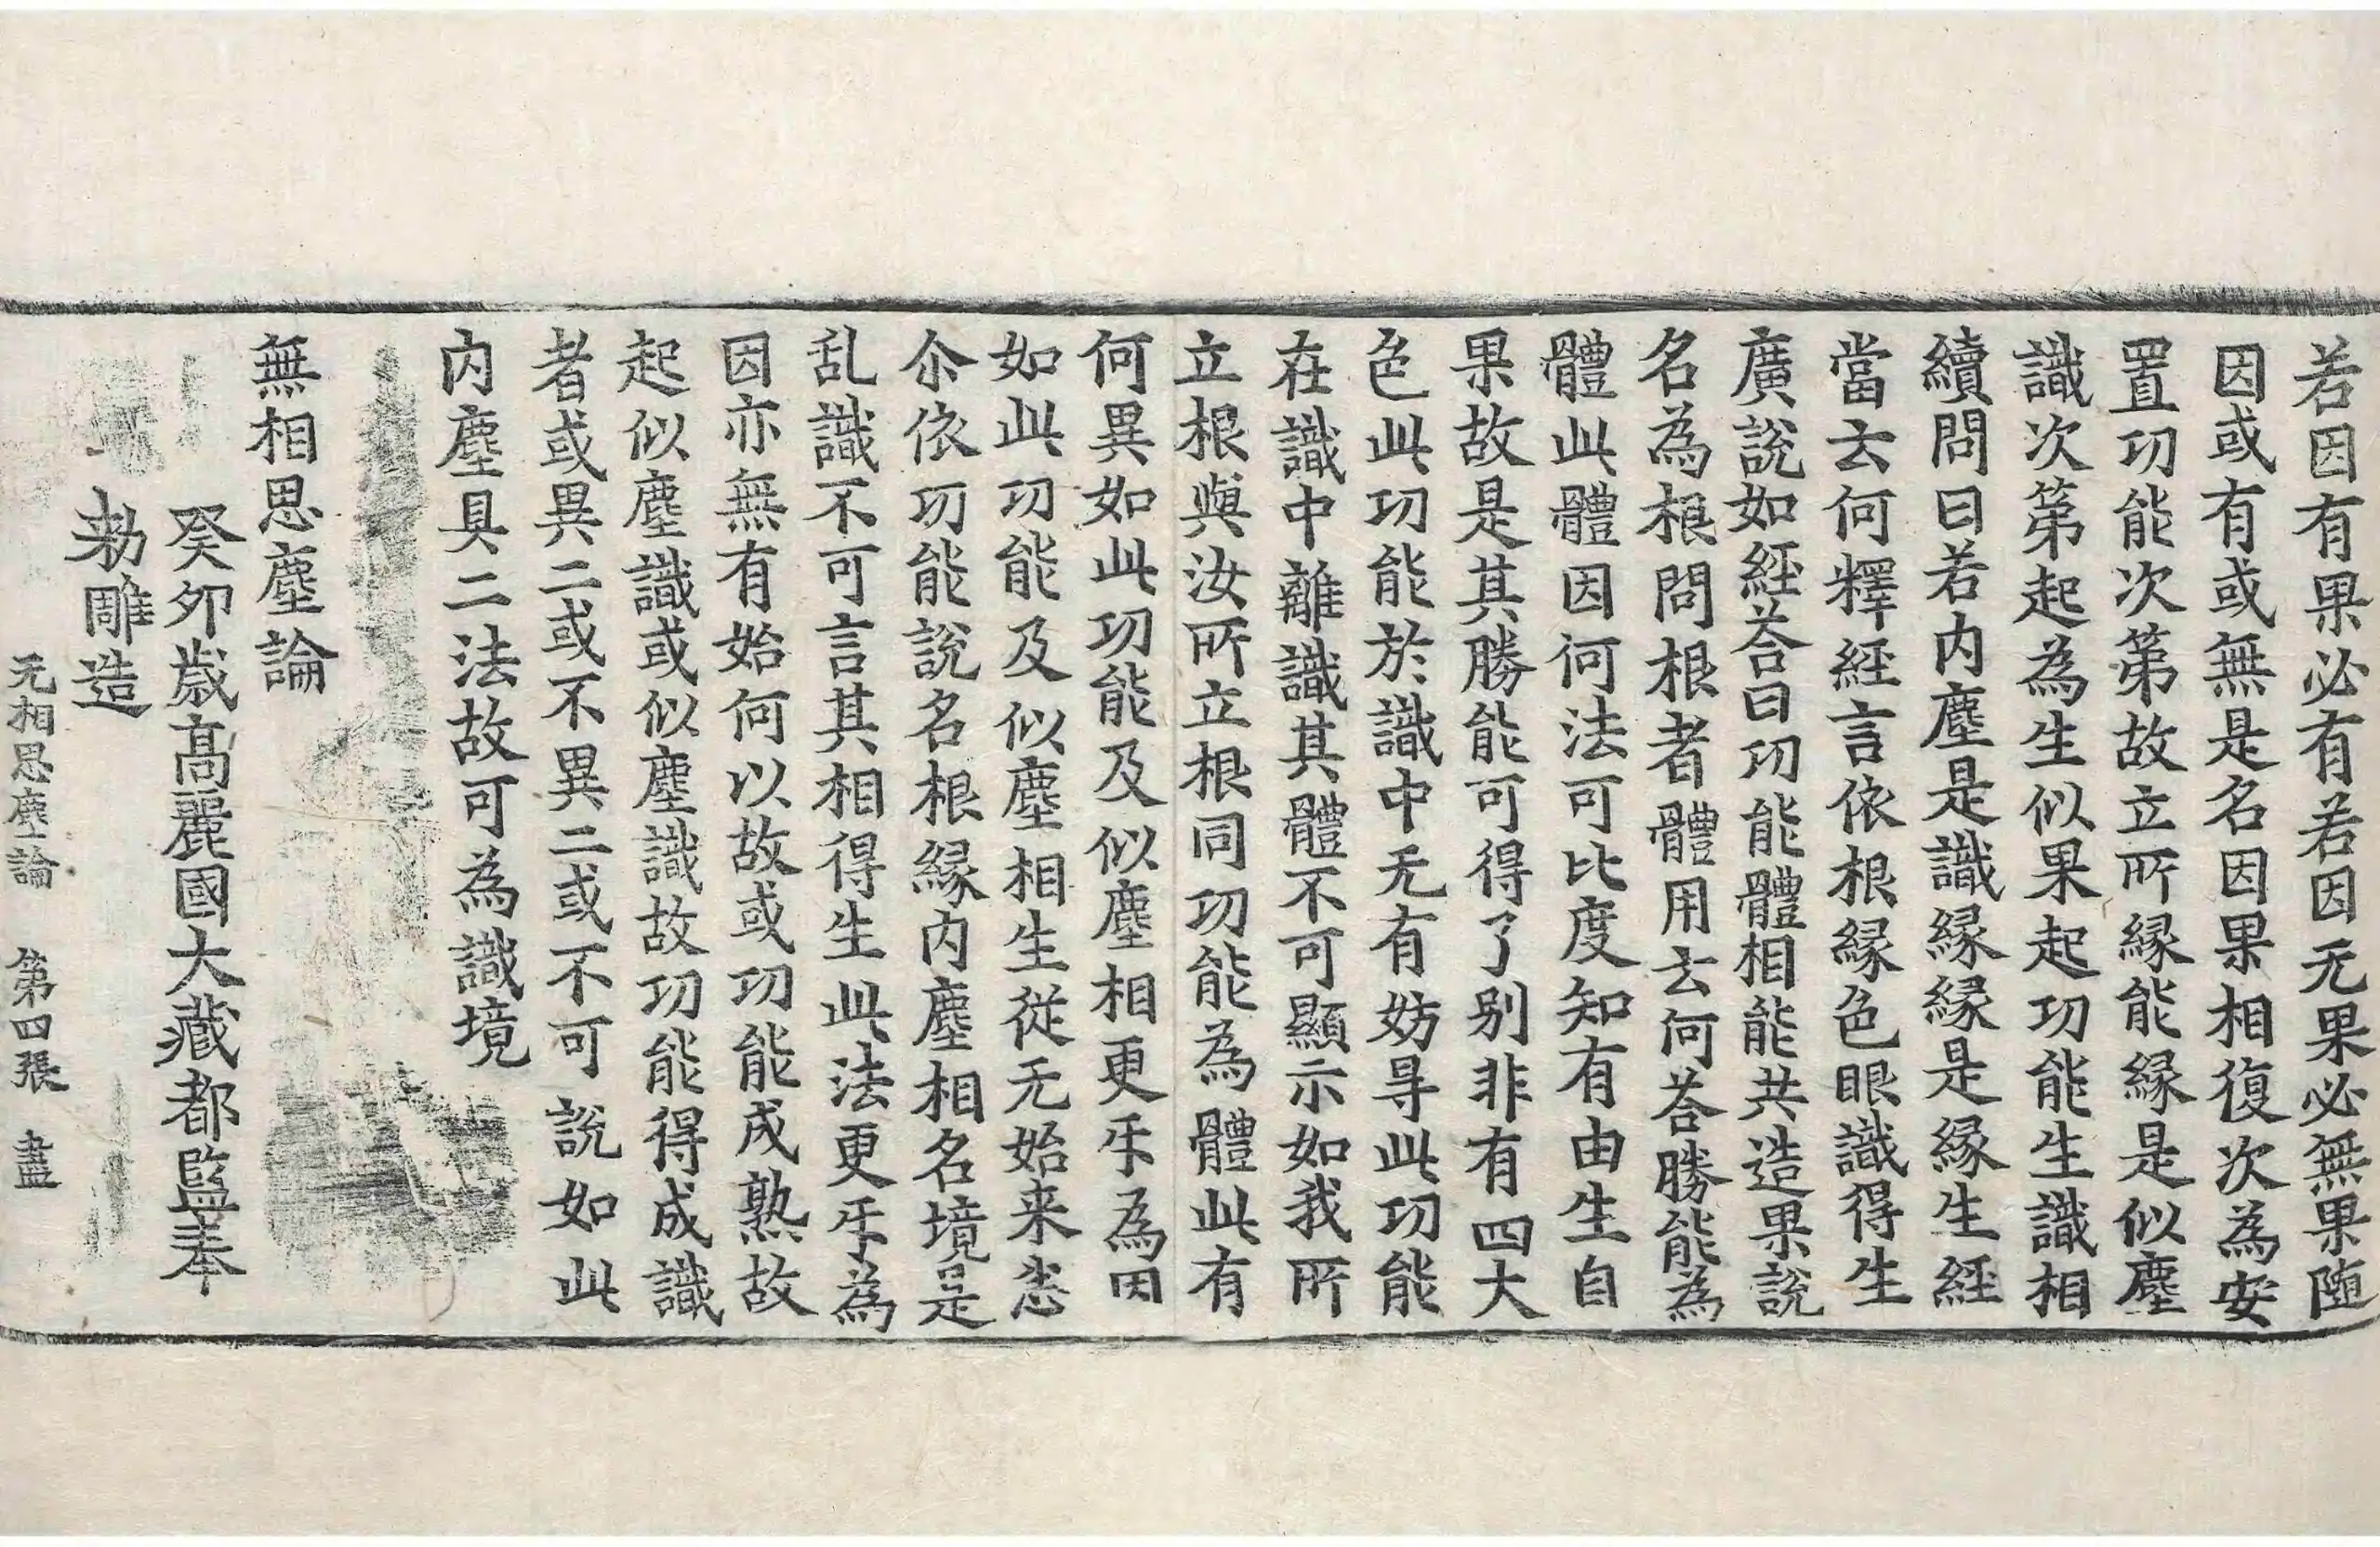 若因有果必有若因无果必無果随
因或有或無是名因果相復次為安
置功能次苐故立所縁能縁是似塵
識次苐起為生似果起功能生識相
續問曰若内塵是識縁縁是縁生經
當云何釋經言依根縁色眼識得生
廣說如經荅曰功能體相能共造果說
名為根問根者體用云何荅勝能為
體此體因何法可比度知有由生自
果故是其勝能可得了别非有四大
色此功能於識中无有妨㝵此功能
在識中離識其體不可顯示如我所
立根與汝所立根同功能為體此有
何異如此功能及似塵相更㸦為因
如此功能及似塵相生從无始来悉
尒依功能說名根縁内塵相名境是
乱識不可言其相得生此法更㸦為
因亦無有始何以故或功能成熟故
起似塵識或似塵識故功能得成識
者或異二或不異二或不可說如此
内塵具二法故可為識境
無相思塵論
癸卯歳高麗國大藏都監奉
勑雕造
无相思塵論 第四張 盡